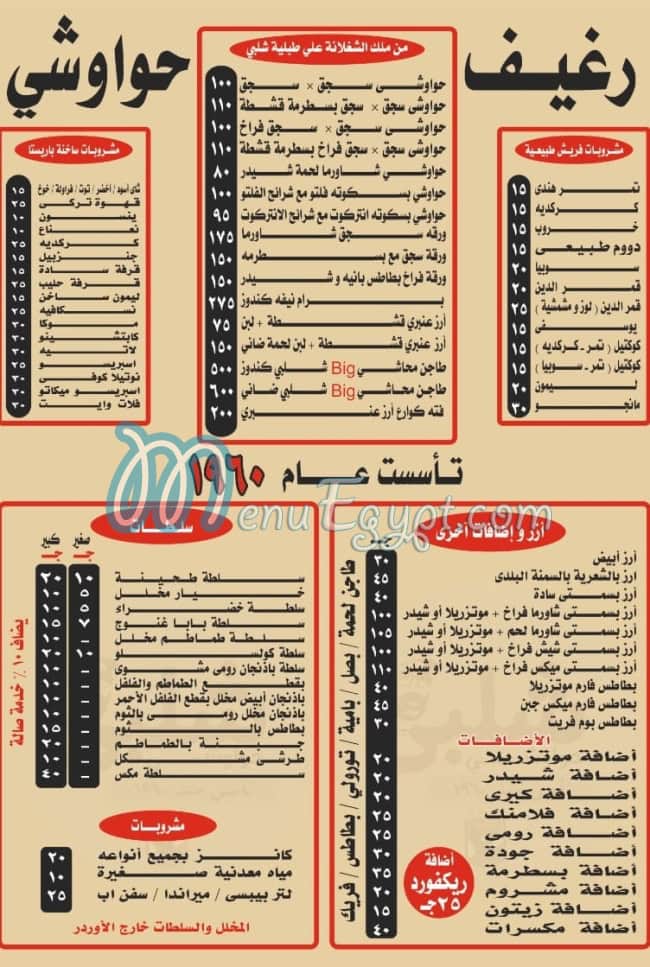 رغيف حواوشي
من ملك الشغلانة علي طبلية شلبي
حواوشى سجق × سجق ١٠٠
حواوشى سجق × سجق بسطرمة قشطة ١١٠
حواوشى سجق × سجق فراخ ١٠٠
حواوشى سجق × سجق فراخ بسطرمة قشطة ١١٠
حواوشي شاورما لحمة شيدر ٨٠
حواوشي بسكوته فلتو مع شرائح الفلتو ١٠٠
حواوشي بسكوته انتركوت مع شرائح الانتركوت ٩٥
ورقه سجق شاورما ١٧٥
ورقة سجق مع بسطرمه ١٥٠
ورقة فراخ بطاطس بانيه و شيدر ١٥٠
برام نيفه كندوز ٢٧٥
أرز عنبري قشطة + لبن ٧٥
أرز عنبري قشطة + لبن لحمة ضاني ١٥٠
طاجن محاشي Big شلبي كندوز ٥٠٠
طاجن محاشي Big شلبي ضاني ٦٠٠
فته كوارع أرز عنبري ٢٠٠
مشروبات فريش طبيعية
تمر هندى ١٥
كركديه ١٥
خروب ١٥
دووم طبيعى ١٥
سوبيا ٢٠
قمر الدين ٢٠
قمر الدين ( لوز و مشمشية ) ٢٥
يوسفى ١٥
كوكتيل ( تمر ـ كركديه ) ١٥
كوكتيل ( تمر ـ سوبيا ) ١٥
ليمون ٢٠
مانجو ٣٠
مشروبات ساخنة باريستا
شاى أسود / أخضر / توت / فراولة / خوخ ١٥
قهوة تركى ٢٥
ينسون ١٠
نعناع ١٠
كركديه ٢٥
جنزبيل ١٥
قرفة سادة ١٥
قرفة حليب ٢٥
ليمون ساخن ١٥
نسكافيه ٢٥
موكا ٣٠
كابتشينو ٣٠
لاتيه ٣٠
اسبريسو ٢٥
نوتيلا كوفى ٣٠
اسبريسو ميكاتو ٣٠
فلات وايت ٣٠
تأسست عام ١٩٦٠
MenuEgypt.com
أرز و إضافات أخرى
جـ
أرز أبيض ٣٠
أرز بالشعرية بالسمنة البلدى ٤٥
أرز بسمتى سادة ٤٠
أرز بسمتى شاورما فراخ + موتزريلا أو شيدر ١٠٠
أرز بسمتى شاورما لحم + موتزريلا أو شيدر ١٠٥
أرز بسمتى شيش فراخ + موتزريلا أو شيدر ١٠٥
أرز بسمتى ميكس فراخ + موتزريلا أو شيدر ١١٠
بطاطس فارم موتزريلا ٤٠
بطاطس فارم ميكس جبن ٤٥
بطاطس بوم فريت ٣٠
الأضافات
أضافة موتزريلا ٢٠
أضافة شيدر ٢٠
أضافة كيرى ٢٠
أضافة فلامنك ٢٥
أضافة رومى ٢٥
أضافة جودة ٣٠
أضافة بسطرمة ٣٥
أضافة مشروم ٢٠
أضافة زيتون ١٥
أضافة مكسرات ٤٠
أضافة
ريكفورد
٢٥جـ
طاجن لحمة / بصل / بامية / تورولي / بطاطس / فريك
سلطات
صغير كبير
جـ جـ
سلطة طحينة ١٠ ٢٠
خيار مخلل
سلطة خضراء
سلطة بابا غنوج
سلطة طماطم مخلل
سلطة كولسلو
سلطة باذنجان رومى مشوى
بقطع الطماطم والفلفل
باذنجان أبيض مخلل بقطع الفلفل الأحمر
باذنجان مخلل رومى بالثوم
بطاطس بالثوم
جبنة بالطماطم
طرشى مشكل
سلطة مكس ٤٠
يضاف ١٠ ٪ خدمة صالة
مشروبات
كانز بجميع أنواعه ٢٠
مياه معدنية صغيرة ١٠
لتر بيبسى / ميراندا / سفن اب ٢٥
المخلل والسلطات خارج الأوردر